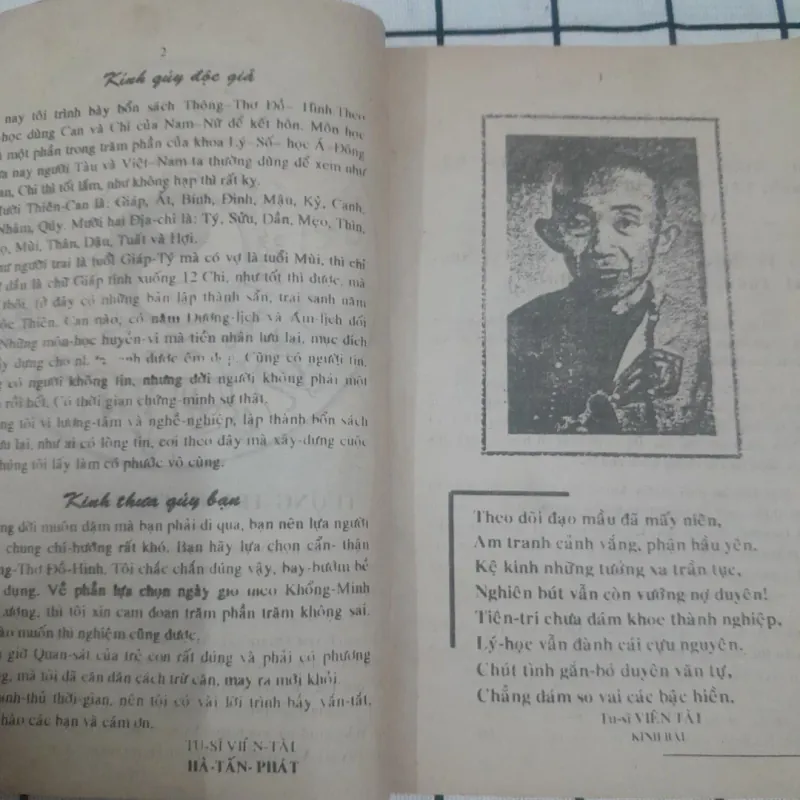 2
Kính qúy độc giả
nay tôi trình bày bổn sách Thông-Thơ Đồ- Hình Theo
học dùng Can và Chi của Nam-Nữ để kết hôn. Môn học
một phần trong trăm phần của khoa Lý-Số- học Á-Đông
nay người Tàu và Việt-Nam ta thường dùng để xem như
Chi thì tốt lắm, như không hạp thì rất kỵ.
Mười Thiên-Can là: Giáp, Ất, Bính, Đinh, Mậu, Kỷ, Canh,
Nhâm, Qúy. Mười hai Địa-chi là: Tý, Sửu, Dần, Mẹo, Thìn,
Mùi, Thân, Dậu, Tuất và Hợi.
người trai là tuổi Giáp-Tý mà có vợ là tuổi Mùi, thì chỉ
dầu là chữ Giáp tính xuống 12 Chi, như tốt thì được, mà
thôi, tờ đây có những bản lập thành sẵn, trai sanh năm
Thiên. Can nào, có năm Dương-lịch và Âm-lịch đối
Những môn-học huyền-vi mà tiền nhân lưu lại, mục đích
dựng cho được êm Cũng có người tin,
có người không tin, nhưng đời người không phải một
rồi hết. Có thời gian chứng-minh sự thật.
tôi vì lương-tâm và nghề-nghiệp, lập thành bổn sách
lại, như ai có lòng tin, coi theo đây mà xây-dựng cuộc
chúng tôi lấy làm có phước vô cùng.
Kính thưa qúy bạn
đời muôn dặm mà bạn phải đi qua, bạn nên lựa người
chung chí-hướng rất khó. Bạn hãy lựa chọn cẩn- thận
Thơ Đồ-Hình. Tôi chắc chắn đúng vậy, bay-bướm bề
dụng. Về phần lựa chọn ngày giờ theo Khổng-Minh
xương, thì tôi xin cam đoan trăm phần trăm không sai.
nào muốn thí nghiệm cũng được.
giờ Quan-sát của trẻ con rất đúng và phải có phương
mà tôi đã căn dặn cách trừ căn, may ra mới khỏi.
thời-gian, nên tôi có vài lời trình bày vắn-tắt,
chào các bạn và cám ơn.
TU-SĨ VIÊN-TÀI
HÀ-TẤN-PHÁT
1
Theo dõi đạo mầu đã mấy niên,
Am tranh cảnh vắng, phận hầu yên.
Kệ kinh những tưởng xa trần tục,
Nghiên bút vẫn còn vướng nợ duyên!
Tiên-tri chưa dám khoe thành nghiệp,
Lý-học vẫn đành cái cựu nguyên.
Chút tình gắn-bó duyên văn tự,
Chẳng dám so vai các bậc hiền.
Tu-sĩ VIÊN TÀI
KÍNH BÁI